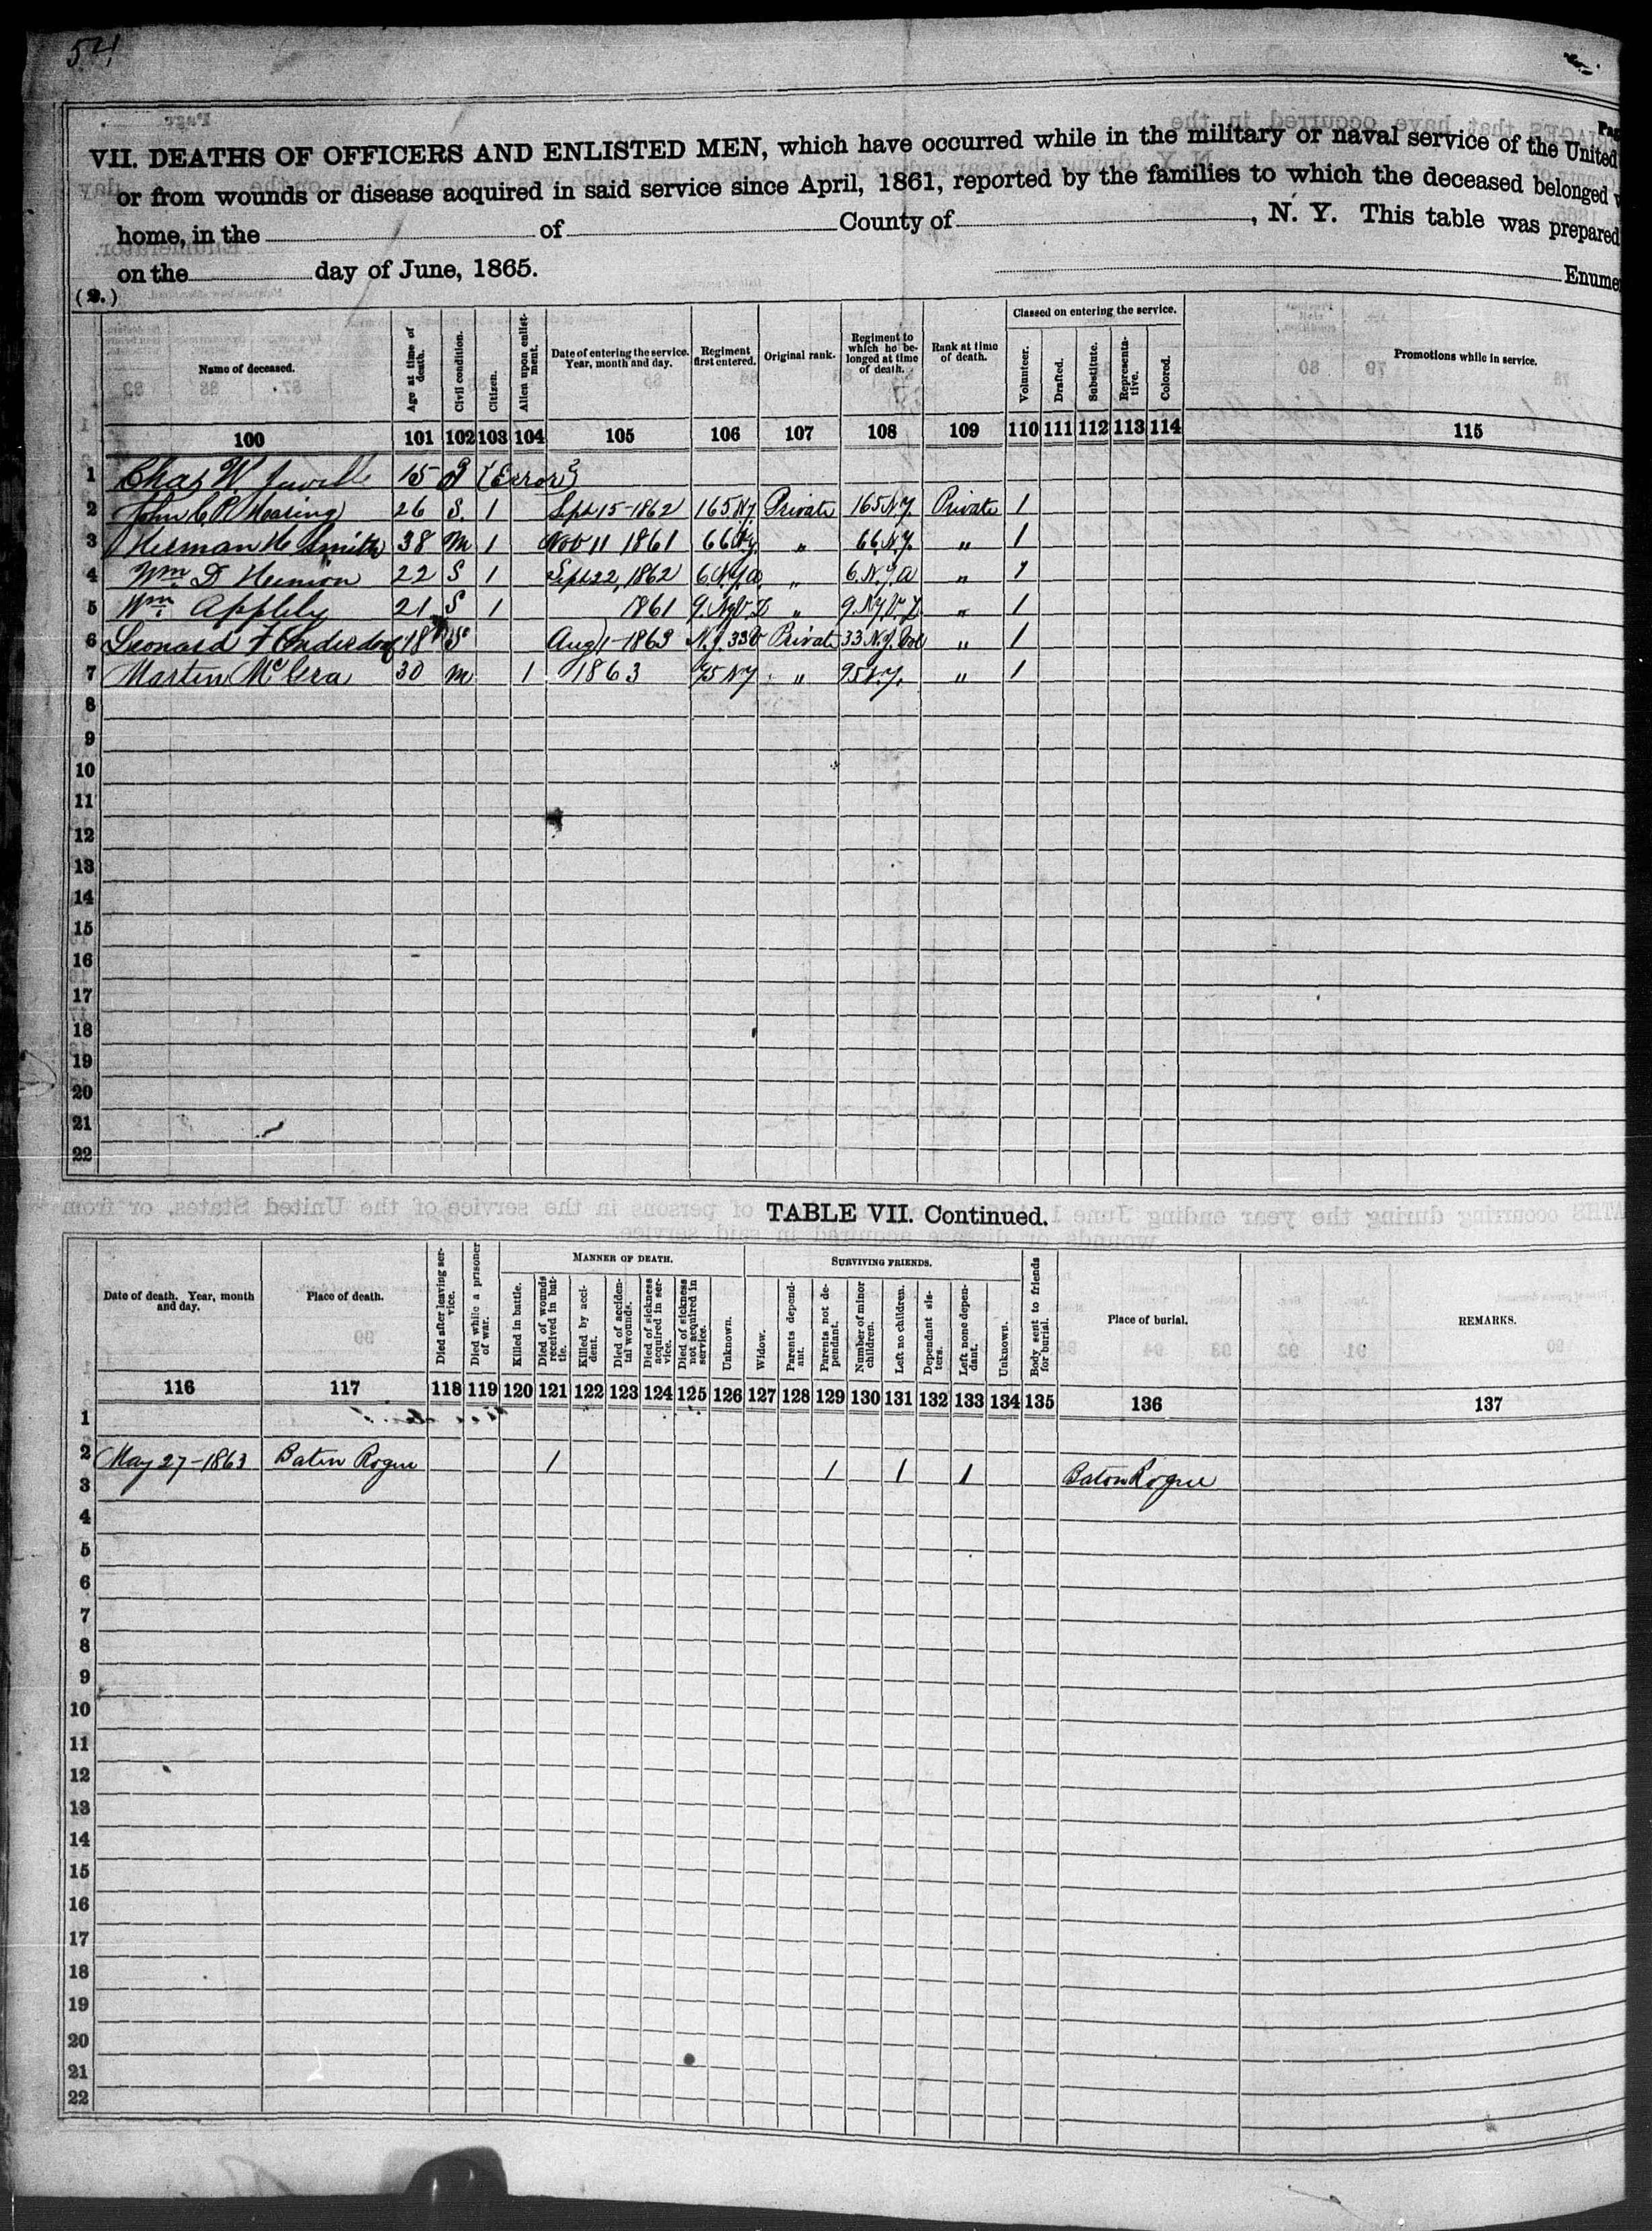 54
VII. DEATHS OF OFFICERS AND ENLISTED MEN, which have occurred while in the military or naval service of the United
or from wounds or disease acquired in said service since April, 1861, reported by the families to which the deceased belonged
home, in the of County of , N. Y. This table was prepared
on the day of June, 1865. Enume
(2.)
Name of deceased. Age at time of death. Civil condition. Citizen. Alien upon enlistment. Date of entering the service. Year, month and day. Regiment first entered. Original rank. Regiment to which he belonged at time of death. Rank at time of death. Classed on entering the service. Volunteer. Drafted. Substitute. Representative. Colored. Promotions while in service.
100 101 102 103 104 105 106 107 108 109 110 111 112 113 114 115
1 Chas W. 15 S {Error}
2 John C. P. Hearing 26 S. 1 Sept 15-1862 165 NY Private 165 N.Y. Private 1
3 Herman H Smith 38 m 1 Nov 11 1861 66 N.Y. " 66 N.Y. " 1
4 Wm D Hennion 22 S 1 Sept 22, 1862 6 N.Y.a " 6. N.Y. a " 1
5 Wm. Appleby 21 S 1 1861 9. NyV. Z " 9. NyV. Z " 1
6 Leonard F Onderdonk 18 S Aug 1-1863 N.J. 33 V Private 33 N.J. Vol " 1
7 Martin McGra 30 m 1 1863 95 NY " 95 N.Y. " 1
8
9
10
11
12
13
14
15
16
17
18
19
20
21
22
TABLE VII. Continued.
Date of death. Year, month and day. Place of death. Died after leaving service. Died while a prisoner of war. MANNER OF DEATH. Killed in battle. Died of wounds received in battle. Killed by accident. Died of accidental wounds. Died of sickness acquired in service. Died of sickness not acquired in service. Unknown. SURVIVING FRIENDS. Widow. Parents dependant. Parents not dependant. Number of minor children. Left no children. Dependant sisters. Left none dependant. Unknown. Body sent to friends for burial. Place of burial. REMARKS.
116 117 118 119 120 121 122 123 124 125 126 127 128 129 130 131 132 133 134 135 136 137
1
2 May 27-1863 Baten Rogue 1 1 1 1 Baton Rogue
3
4
5
6
7
8
9
10
11
12
13
14
15
16
17
18
19
20
21
22